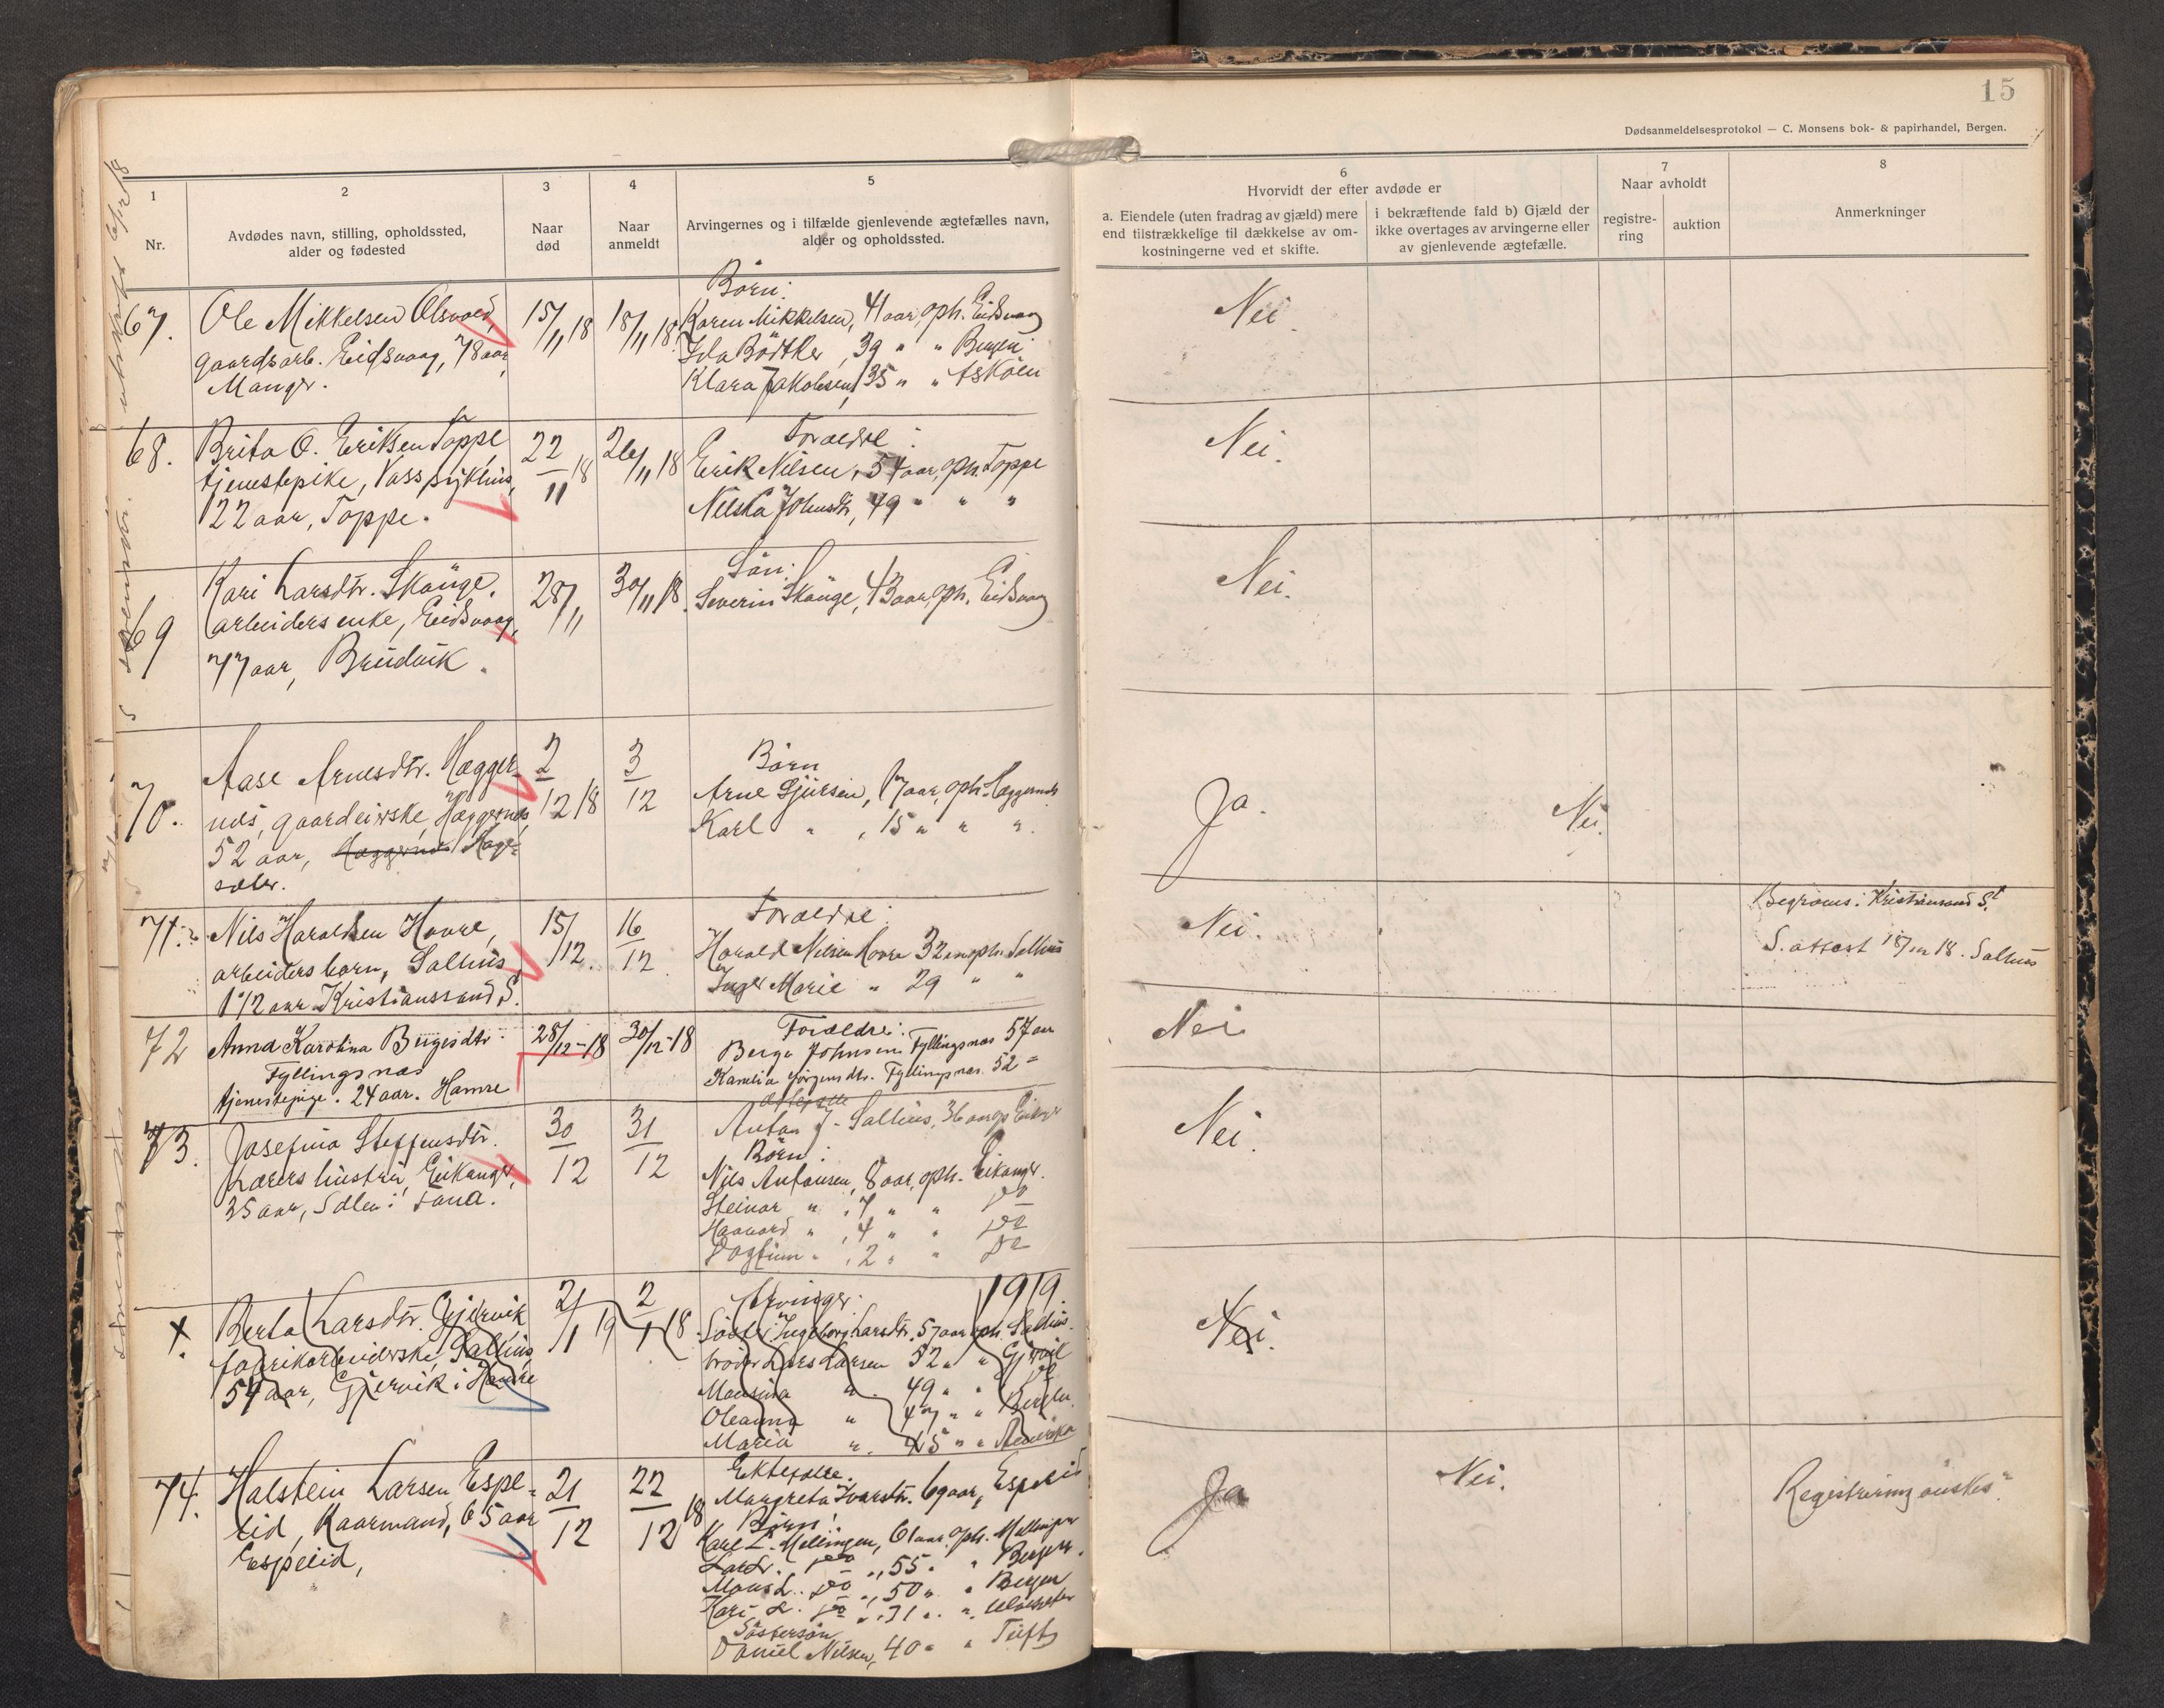 15
Dødsanmeldelsesprotokol — C. Monsens bok- & papirhandel, Bergen.
1
Nr.
2
Avdødes navn, stilling, opholdssted,
alder og fødested
3
Naar
død
4
Naar
anmeldt
5
Arvingernes og i tilfælde gjenlevende ægtefælles navn,
alder og opholdssted.
6
Hvorvidt der efter avdøde er
a. Eiendele (uten fradrag av gjæld) mere
end tilstrækkelige til dækkelse av om-
kostningerne ved et skifte.
i bekræftende fald b) Gjæld der
ikke overtages av arvingerne eller
av gjenlevende ægtefælle.
7
Naar avholdt
registre-
ring
auktion
8
Anmerkninger
67.
Ole Mikkelsen
gaardsarb. Eidsvaag, 78 aar,
Manger.
15/11 18
18/11 18
Börn:
Karen Mikkelsen, 41 aar, oph. Eidsvaag
Ida Bödtker, 39 " " Bergen
Klara Jakobsen, 35 " " Asköen
Nei.
68.
Brita O. Eriksen Toppe,
tjenestepike, Voss sykhus,
22 aar, Toppe.
22/11 18
26/11 18
Foraeldre:
Erik Nilsen, 54 aar, oph. Toppe
Nilska Johnsdtr, 49 " " "
Nei.
69
Kari Larsdtr. Skauge,
arbeidersenke, Eidsvaag,
77 aar, Bruvik.
28/11
30/11 18.
Sön:
Severin Skauge, 43 aar, oph. Eidsvaag
Nei.
70.
Aase Arnesdtr. Hægger-
næs, gaardeierske, Hæggernæs,
52 aar, Hæggernæs Hage-
sæter.
2/12 18
3/12
Börn
Arne Sjursen, 17 aar, oph. Hæggernæs
Karl " , 15 " " ".
Ja.
Nei.
71.
Nils Haraldsen Haare,
arbeidersbarn, Salhus,
1 1/2 aar Kristianssand S.
15/12.
16/12
Foraeldre:
Harald Nilsen Haare 32 aar oph. Salhus
Inger Marie " 29 " "
Nei.
Begraves i Kristianssand S.
S. attest 18/12 18. Salhus
72
Anna Karolina Bergesdtr
Fyllingsnæs
tjenestepige. 24 aar. Hamre
28/12-18
30/12-18
Forældre:
Berge Johnsen Fyllingsnæs 57 aar
Kamilia Jörgensdtr. Fyllingsnæs. 52 "
Nei
73.
Josefina Steffensdtr.
Lærers hustru, Eikanger,
35 aar, Sælen i Fana.
30/12
31/12
Anton J. Salhus, 36 aar
Börn:
Nils Antonsen, 8 aar, oph. Eikanger.
Steinar " , 7 " " do
Haavard " , 4 " " do
Dagfinn " , 2 " " do
Nei.
1919.
X.
Berta Larsdtr. Gjervik
fabrikarbeiderske, Salhus,
54 aar, Gjervik i Hamre
2/1 19
2/1 18
Arvinger:
Söster Ingeborg Larsdtr. 57 aar oph. Salhus.
broder Lars Larsen 52 " " Gjervik
Monsina " . 49 " " do
Oleanna " 47 " " Bergen.
Maria " . 45 " " Amerika
Nei.
74.
Halstein Larsen Espe-
lid, Kaarmand, 65 aar
Espelid,
21/12
22/12 18
Ektefælle.
Margreta Ivarsdtr. 69 aar, Espelid
Börn:
Karl L. Mellingen, 61 aar. oph. Mellingen
Lars L. do , 55 " " Bergen.
Mons L. do , 50 " " Bergen
Kari L. do , 31 " "
Söstersön
Daniel Nilsen, 40 " " Tuft
Ja
Nei.
Registrering önskes.